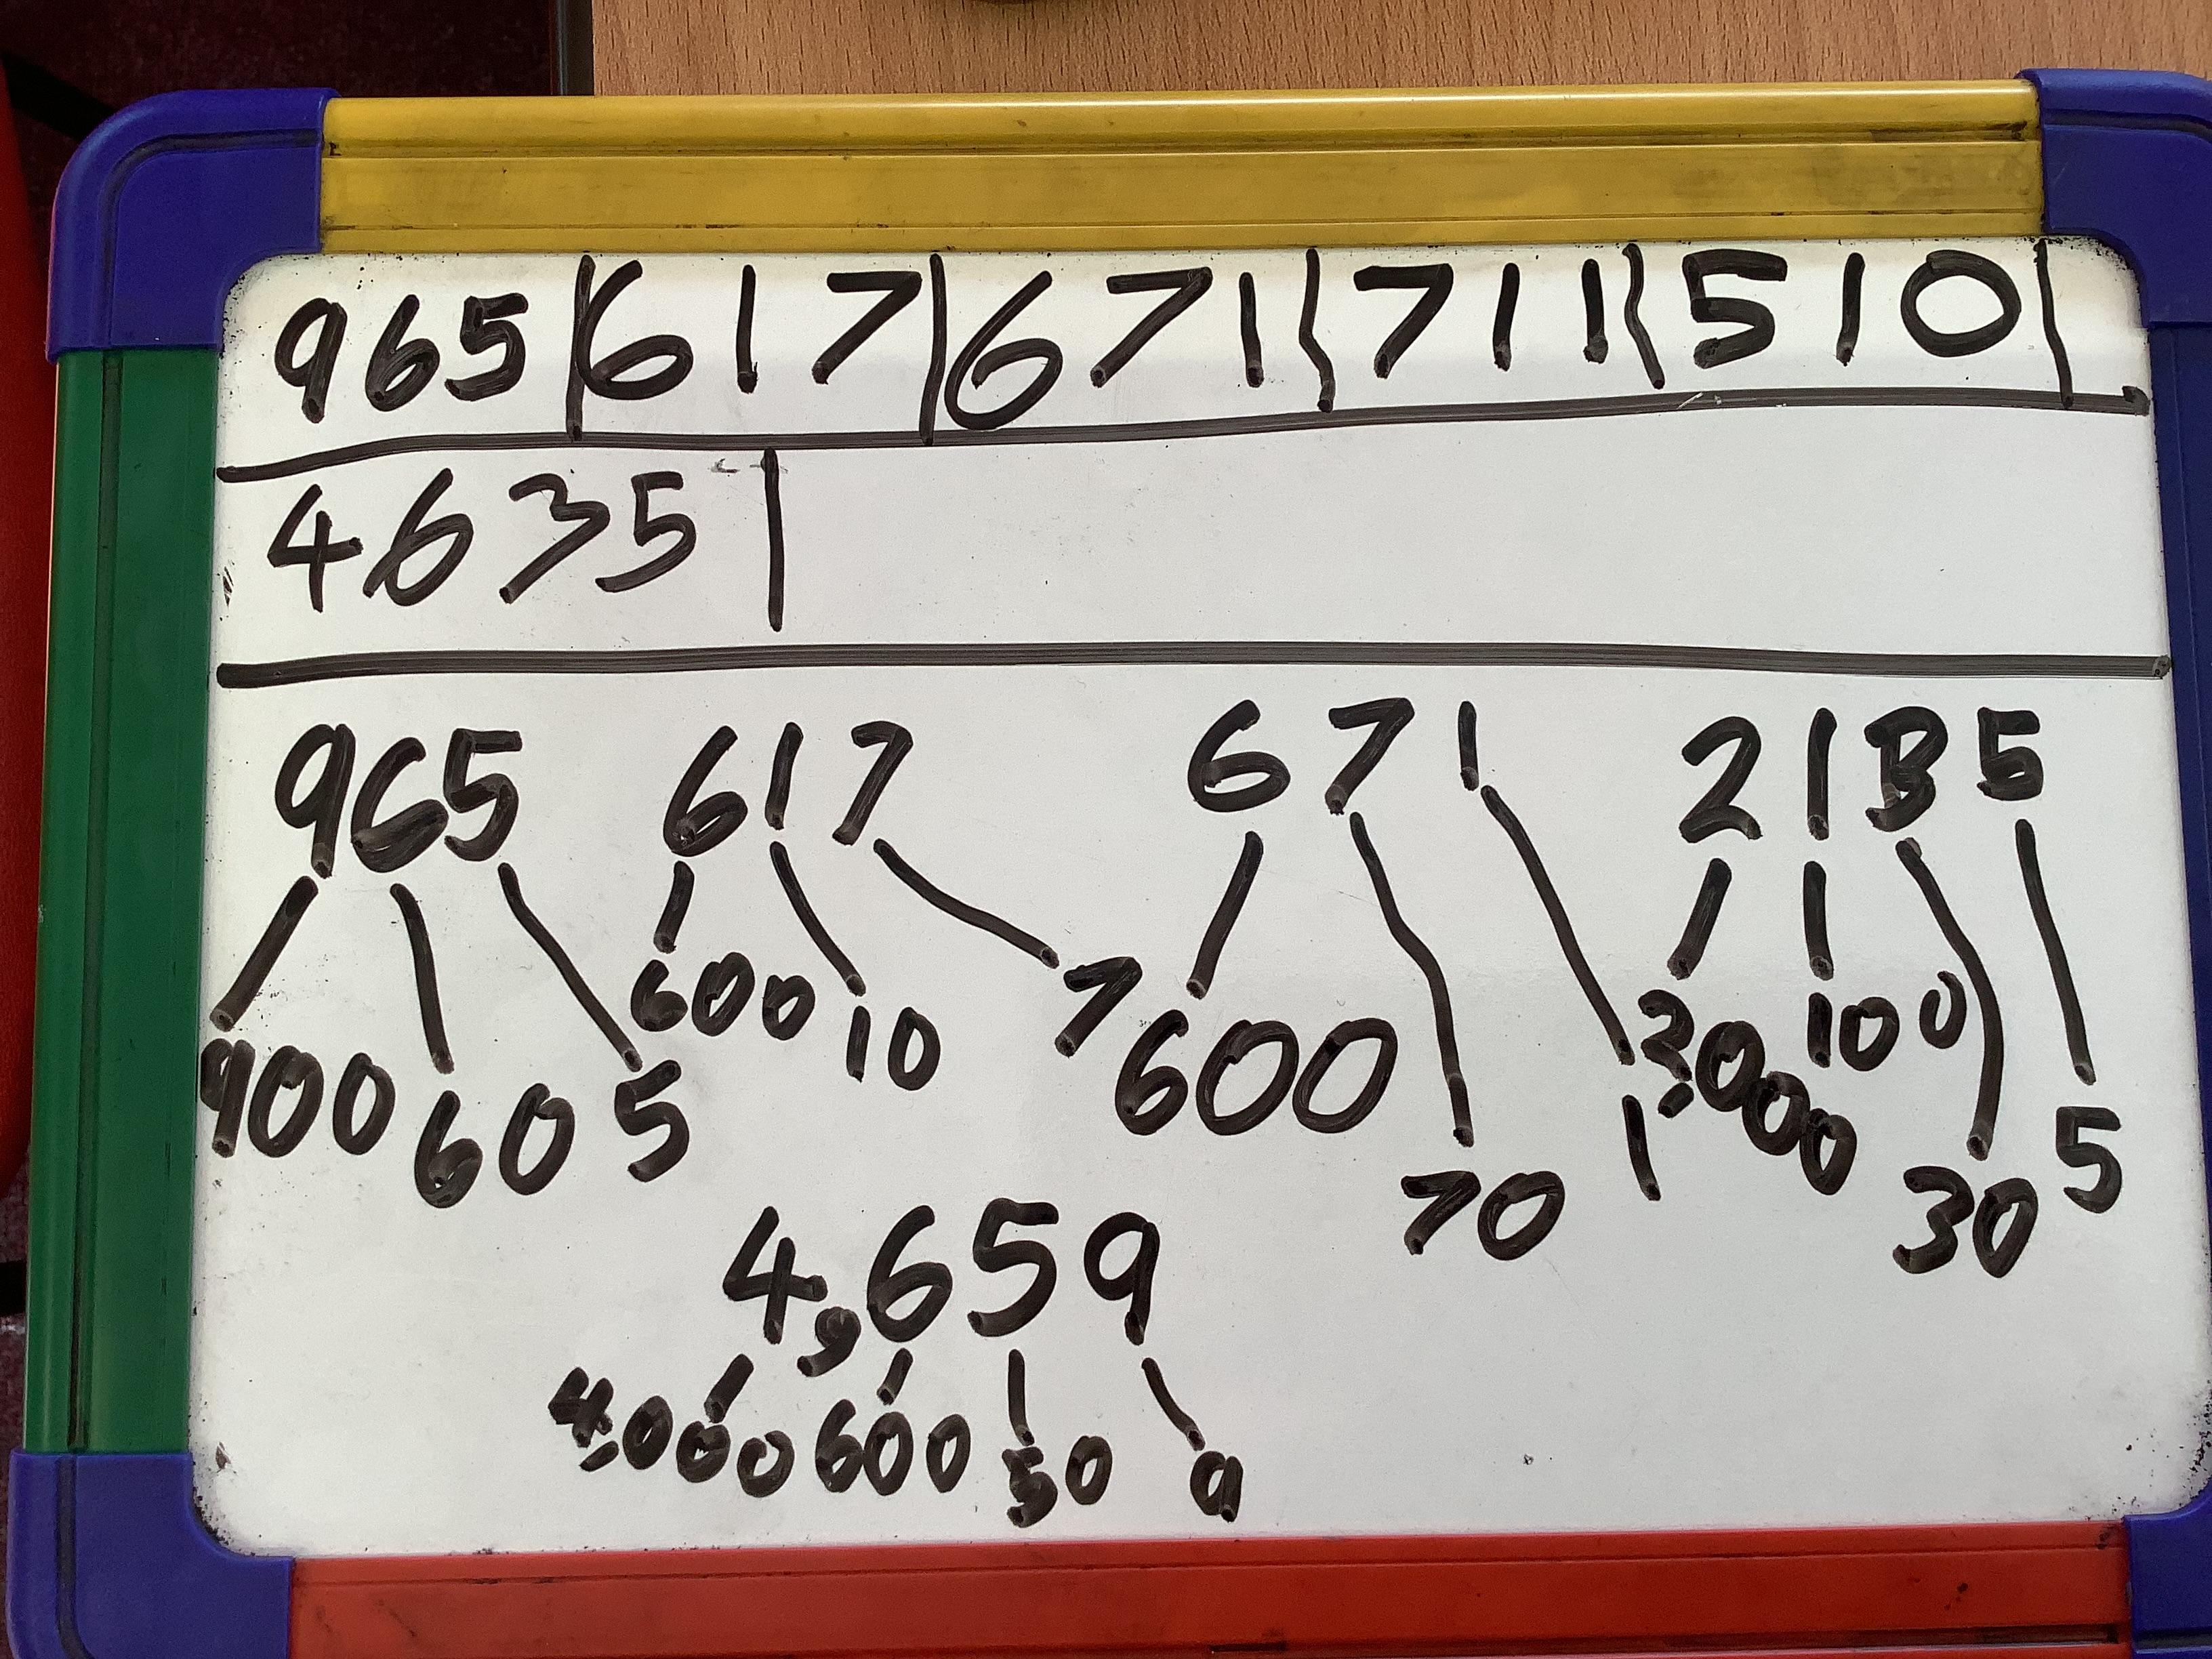 965 | 617 | 671 | 711 | 510 |
4635 |
965 617 671 2135
900 60 5 600 10 7 600 70 1 2000 100 30 5
4,659
4,000 600 50 9